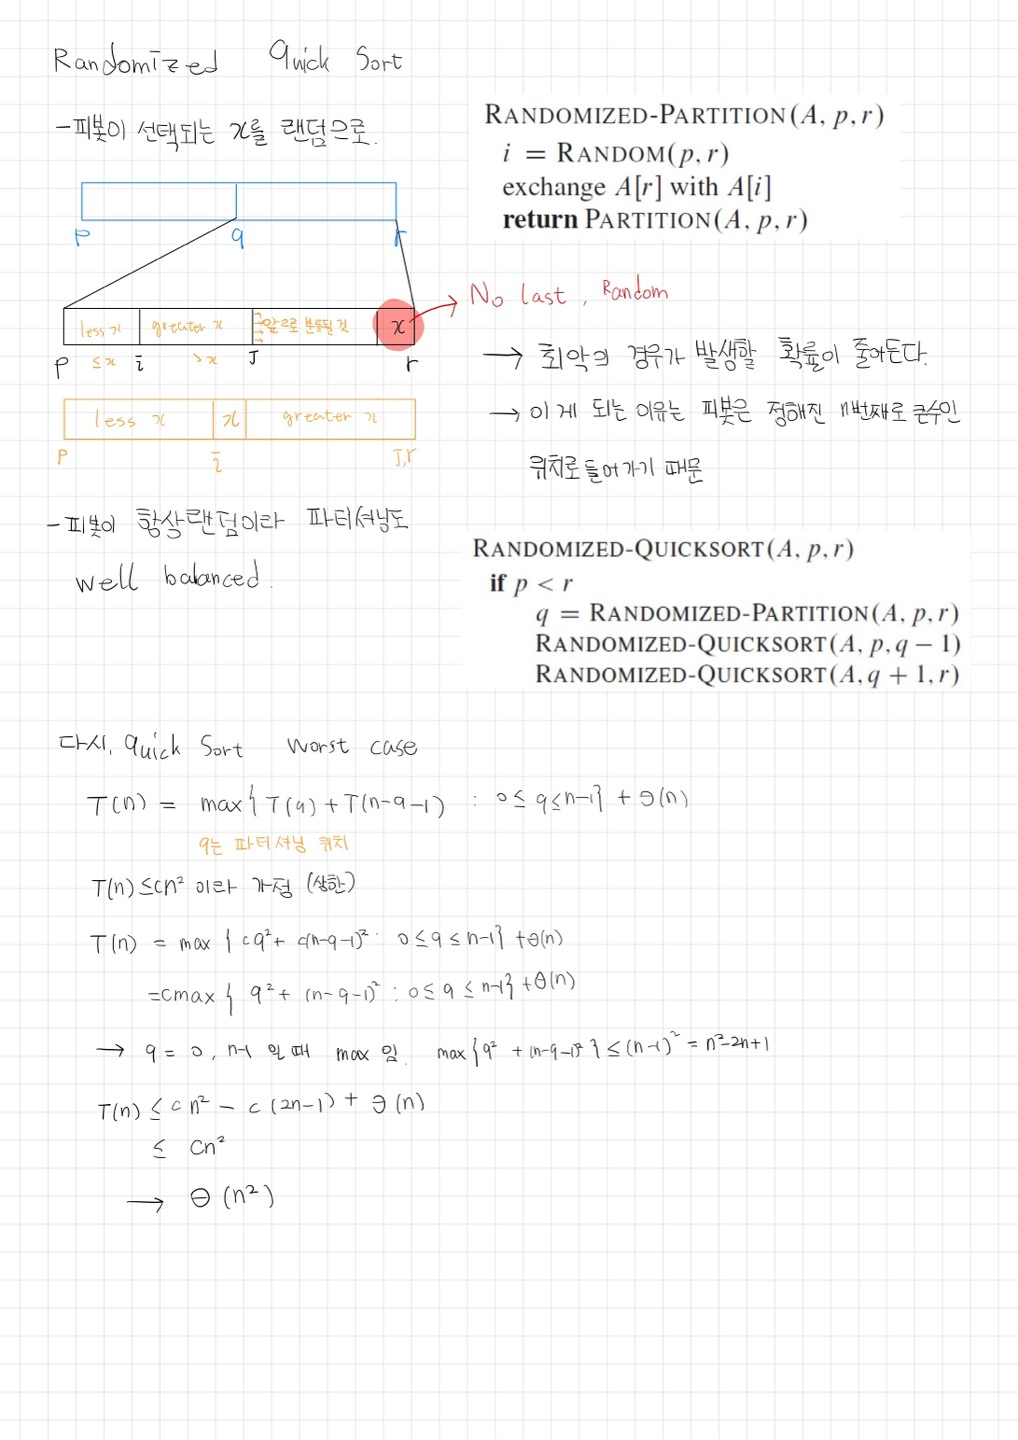 Randomized Quick Sort
- 피봇이 선택되는 x를 랜덤으로.
RANDOMIZED-PARTITION(A, p, r)
i = RANDOM(p, r)
exchange A[r] with A[i]
return PARTITION(A, p, r)
p q r
less x greater x 앞으로 분류될 것 x
p ≤x i >x J r
No last, Random
→ 최악의 경우가 발생할 확률이 줄어든다.
less x x greater x
p i J,r
→ 이게 되는 이유는 피봇은 정해진 n번째로 큰수인
위치로 들어가기 때문
- 피봇이 항상랜덤이라 파티셔닝도
well balanced.
RANDOMIZED-QUICKSORT(A, p, r)
if p < r
q = RANDOMIZED-PARTITION(A, p, r)
RANDOMIZED-QUICKSORT(A, p, q − 1)
RANDOMIZED-QUICKSORT(A, q + 1, r)
다시, Quick Sort Worst case
T(n) = max{ T(q) + T(n-q-1) : 0≤ q ≤n-1} + Θ(n)
q는 파티셔닝 위치
T(n) ≤cn² 이라 가정 (상한)
T(n) = max { cq² + c(n-q-1)² : 0 ≤ q ≤ n-1} + Θ(n)
=cmax { q² + (n-q-1)² : 0≤ q ≤ n-1} + Θ(n)
→ q = 0, n-1 일 때 max 임. max{q² + (n-q-1)² } ≤ (n-1)² = n²-2n+1
T(n) ≤ cn² - c (2n-1) + Θ(n)
≤ Cn²
→ Θ (n²)